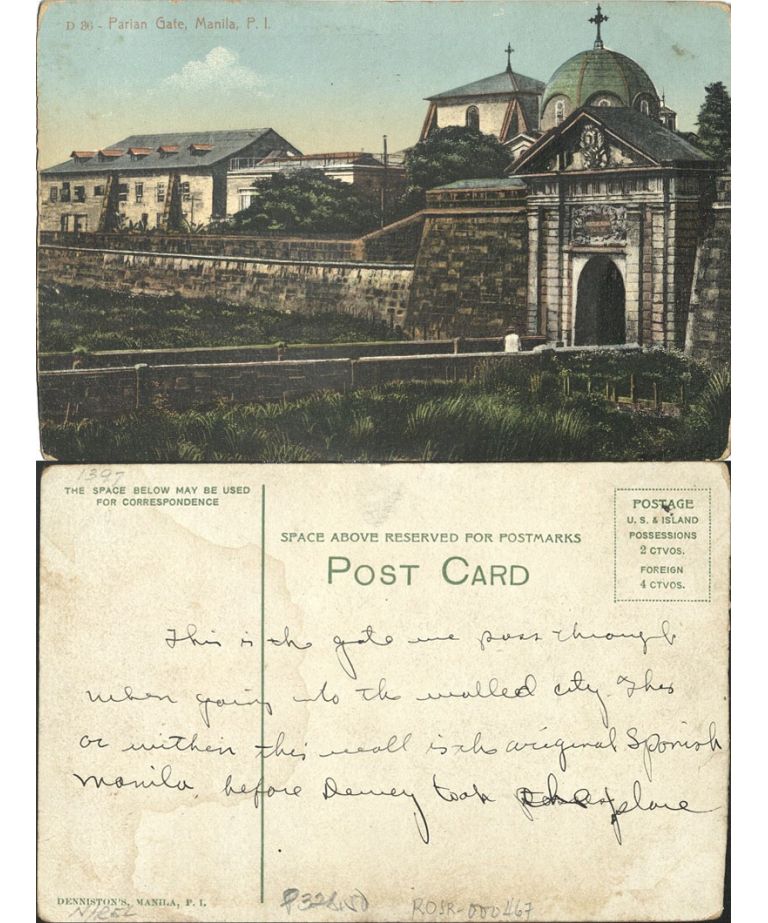 D 36 - Parian Gate, Manila, P. I.
1397
THE SPACE BELOW MAY BE USED
FOR CORRESPONDENCE
SPACE ABOVE RESERVED FOR POSTMARKS
POST CARD
POSTAGE
U. S. & ISLAND
POSSESSIONS
2 CTVOS.
FOREIGN
4 CTVOS.
This is the gate we pass through
when going into the walled city. This
or within this wall is the original Spanish
Manila, before Dewey took place
DENNISTON'S, MANILA, P. I.
ROSR-000467